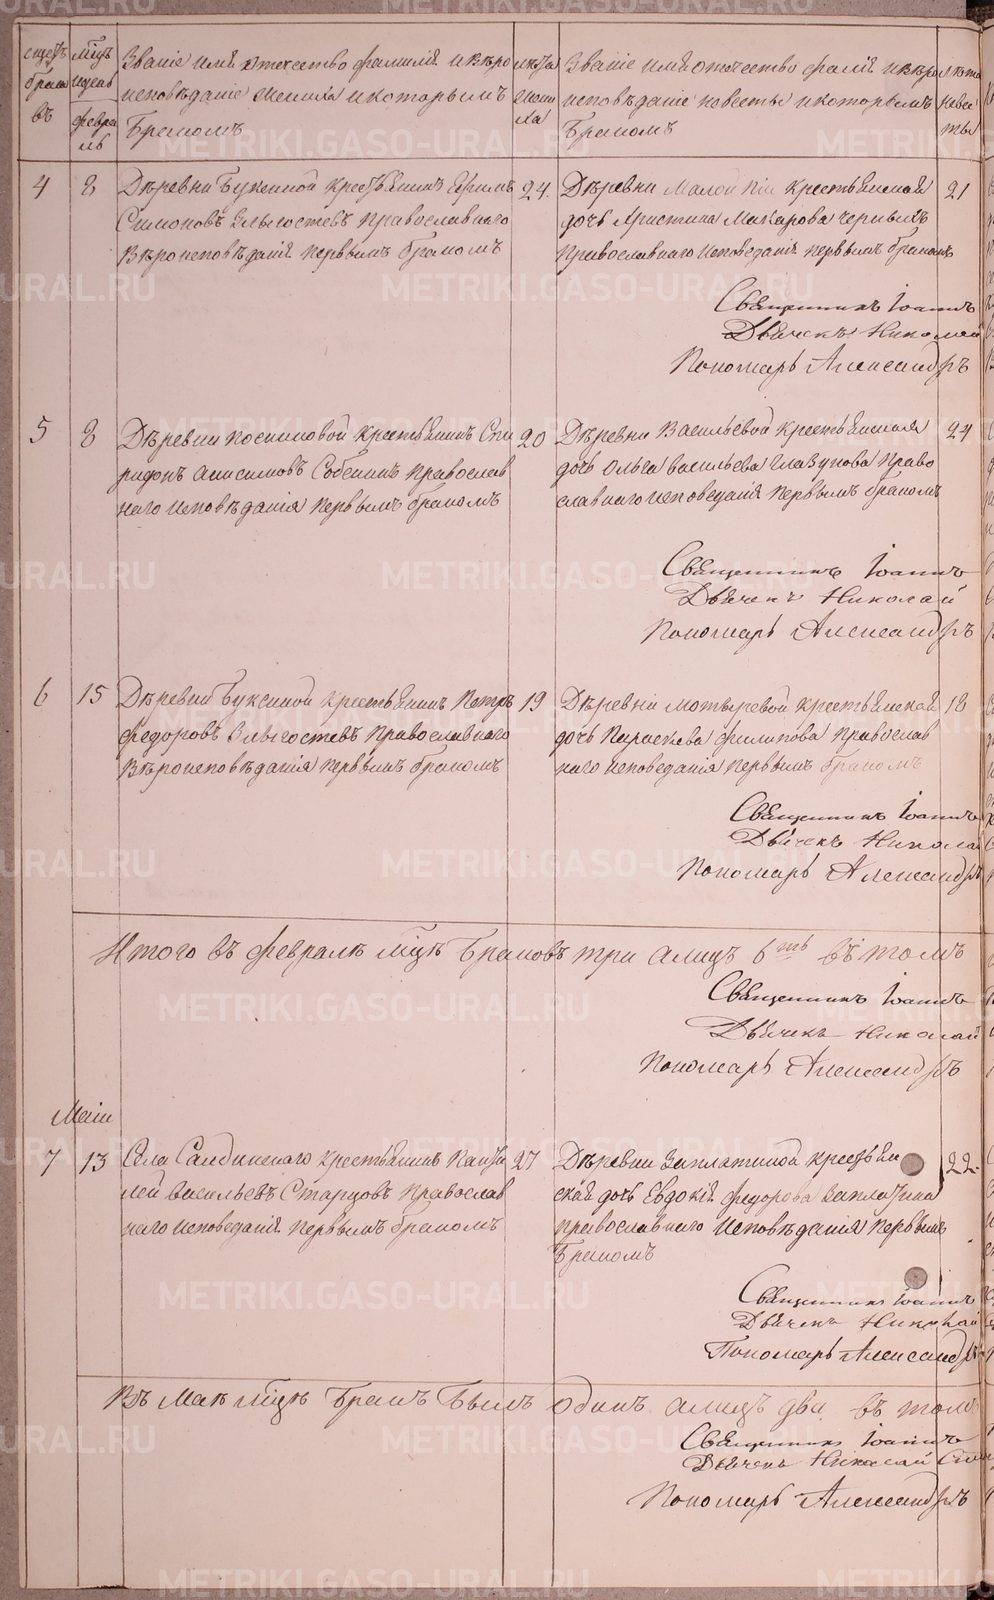 Званіе имя отчество фамилія и вѣро
исповѣданіе жениха и которымъ
бракомъ
лѣта
жени
ха
Званіе имя отчество фамілія и вѣро
исповѣданіе невесты и которымъ
бракомъ
лѣта
невес
ты
счетъ
брако
въ
мѣцъ
и день
февра
ль
4
8
Дѣревни Буксиной крестьянинъ Ефимъ
Симоновъ Православнаго
Вѣроисповѣданія первымъ бракомъ
24.
Дѣревни Малой крестьянская
дочь Христина Макарова Черныхъ
Православнаго исповеданія первымъ бракомъ
21
Священникъ Іоаннъ
Дьячекъ Николай
Пономарь Александръ
5
8
Дѣревни крестьянинъ Спи
ридонъ Анисимовъ Собенинъ Православ
наго исповѣданія первымъ бракомъ
20
Дѣревни Васильевой крестьянская
дочь Ольга Васильева Глазунова Право
славнаго исповеданія первымъ бракомъ
24
Священникъ Іоаннъ
Дьячекъ Николай
Пономарь Александръ
6
15
Дѣревни Буксиной крестьянинъ Петръ
Федоровъ Православнаго
Вѣроисповѣданія первымъ бракомъ
19
Дѣревни Мотыревой крестьянская
дочь Параскева Филипова Православ
наго исповеданія первымъ бракомъ
18
Священникъ Іоаннъ
Дьячекъ Николай
Пономарь Александръ
Итого въ февралѣ мѣцѣ браковъ три а лицъ 6ть въ томъ
Священникъ Іоаннъ
Дьячекъ Николай
Пономарь Александръ
Маіи
7
13
Села Салдинскаго крестьянинъ Панте
лей Васильевъ Старцовъ Православ
наго исповеданія первымъ бракомъ
27
Дѣревни Заплатиной крестьян
ская дочь Евдокія Федорова Заплатина
Православнаго исповѣданія первымъ
бракомъ
22.
Священникъ Іоаннъ
Дьячекъ Николай
Пономарь Александръ
Въ Маѣ мѣцѣ бракъ былъ одинъ а лицъ два въ томъ
Священникъ Іоаннъ
Дьячекъ Николай
Пономарь Александръ
METRIKI.GASO-URAL.RU